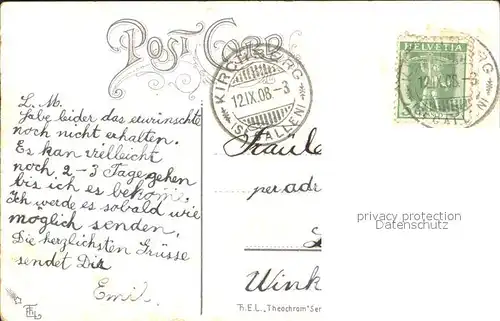 POST CARD
KIRCHBERG
12.IX.08.-3
(ST. GALLEN)
HELVETIA
12.IX.08.-3
L. M.
Habe leider das erwünschte
noch nicht erhalten.
Es kan vielleicht
noch 2-3 Tage gehen
bis ich es bekome,
Ich werde es sobald wie
möglich senden.
Die herzlichsten Grüsse
sendet Dir
Emil.
per adr
Wink
privacy protection
Datenschutz
T.H.E.L. „Theochrom" Ser